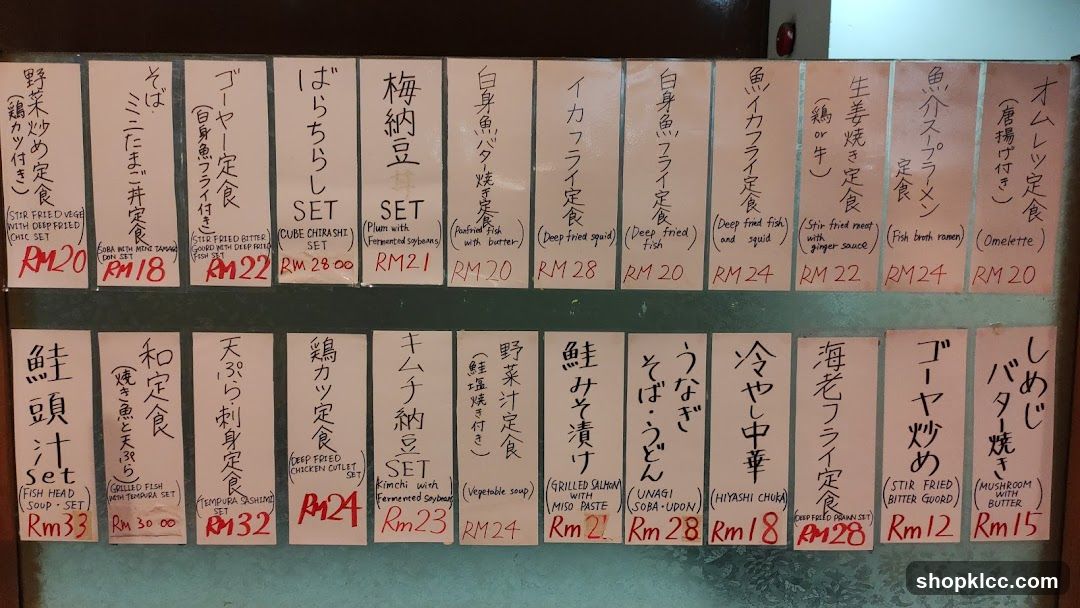 野菜炒め定食
(鶏カツ付き)
(STIR FRIED VEGE
WITH DEEP FRIED
CHIC SET
RM20
そば
ミニたまご丼定食
SOBA WITH MINI TAMAGO
DON SET
RM18
ゴーヤー定食
(白身魚フライ付き)
(STIR FRIED BITTER
GOURD WITH DEEP FRIED
FISH SET
RM22
ばらちらし
SET
(CUBE CHIRASHI
SET
RM 28 00
梅納豆丼
SET
(Plum with
Fermented Soybeans)
RM21
白身魚バター焼き定食
(Panfried fish
with butter)
RM20
イカフライ定食
(Deep fried squid)
RM 28
白身魚フライ定食
(Deep fried
fish)
RM 20
魚イカフライ定食
(Deep fried fish
and squid)
RM 24
生姜焼き定食
(鶏or牛)
(Stir fried meat
with
ginger sauce)
RM 22
魚介スープラーメン
定食
(Fish broth ramen)
RM24
オムレツ定食
(唐揚げ付き)
(Omelette)
RM 20
鮭頭汁
set
(FISH HEAD
SOUP・SET)
Rm33
和定食
(焼き魚と天ぷら)
(GRILLED FISH
WITH TEMPURA SET)
RM 30 00
天ぷら・刺身定食
(TEMPURA SASHIMI
SET
RM32
鶏カツ定食
(DEEP FRIED
CHICKEN CUTLET
SET)
RM24
キムチ納豆
SET
Kimchi with
(Fermented Soybeans)
Rm23
野菜汁定食
(鮭塩焼き付き)
(Vegetable soup)
RM24
鮭みそ漬け
(GRILLED SALMON
WITH
MISO PASTE)
Rm 21
うなぎ
そば・うどん
(UNAGI
SOBA・UDON)
Rm 28
冷やし中華
(HIYASHI CHUKA)
Rm18
海老フライ定食
(DEEP FRIED PRAWN SET)
RM28
ゴーヤ炒め
(STIR FRIED
BITTER GUORD)
Rm12
しめじ
バター焼き
(MUSHROOM
WITH
BUTTER)
Rm15
shopklcc.com